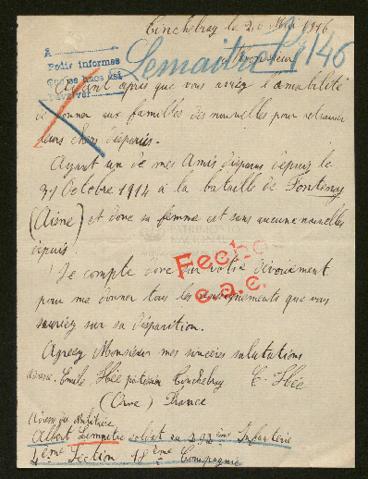 Tinchebray le 20 Mai 1916
A
Pedir informes
Que se haga así
Devolver
Lemaitre
146
Monsieur
Ayant apris que vous aviez l'amabilité
de donner aux familles des nouvelles pour retrouver
leurs chers disparus.
Ayant un de mes Amis disparu depuis le
31 Octobre 1914 à la bataille de Fontenoy
(Aisne) et donc sa femme est sans aucune nouvelles
depuis
Je compte donc sur votre dévouement
pour me donner tous les renseignements que vous
auriez sur sa disparition.
Fecho
c.a.e.
Agreez Monsieur mes sincères salutations
Emile Hée Tinchebray E. Hée
(Orne) France
Albert Lemaitre soldat au 292ème Infanterie
4ème Section 18ème Compagnie